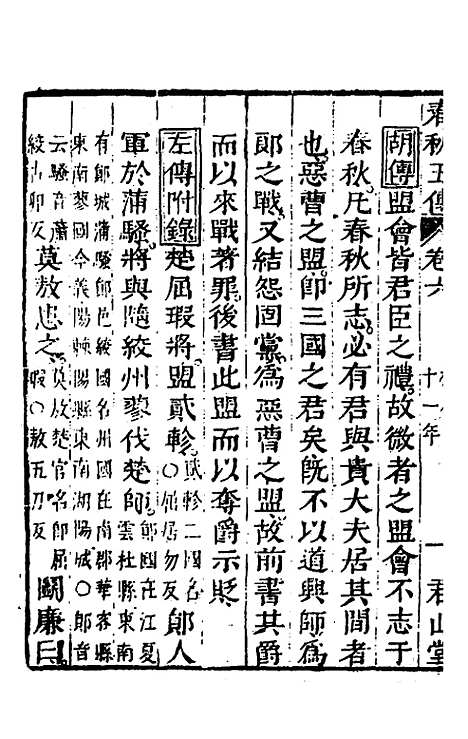 春秋五傳 卷六 十一年 一 君山堂
胡傳盟會皆君臣之禮故微者之盟會不志于
春秋凡春秋所志必有君與貴大夫居其間者
也惡曹之盟即三國之君矣旣不以道興師爲
郎之戰又結怨固黨爲惡曹之盟故前書其爵
而以來戰著罪後書此盟而以奪爵示貶
左傳附錄楚屈瑕將盟貳軫貳軫二國名○屈居勿反鄖人
軍於蒲騷將與隨絞州蓼伐楚師鄖國在江夏雲杜縣東南
有鄖城蒲騷鄖邑絞國名州國在南郡華容縣
東南蓼國今義陽棘陽縣東南湖陽城○鄖音
云騷音蕭絞古卯反莫敖患之莫敖楚官名即屈瑕○敖五刀反鬬廉曰